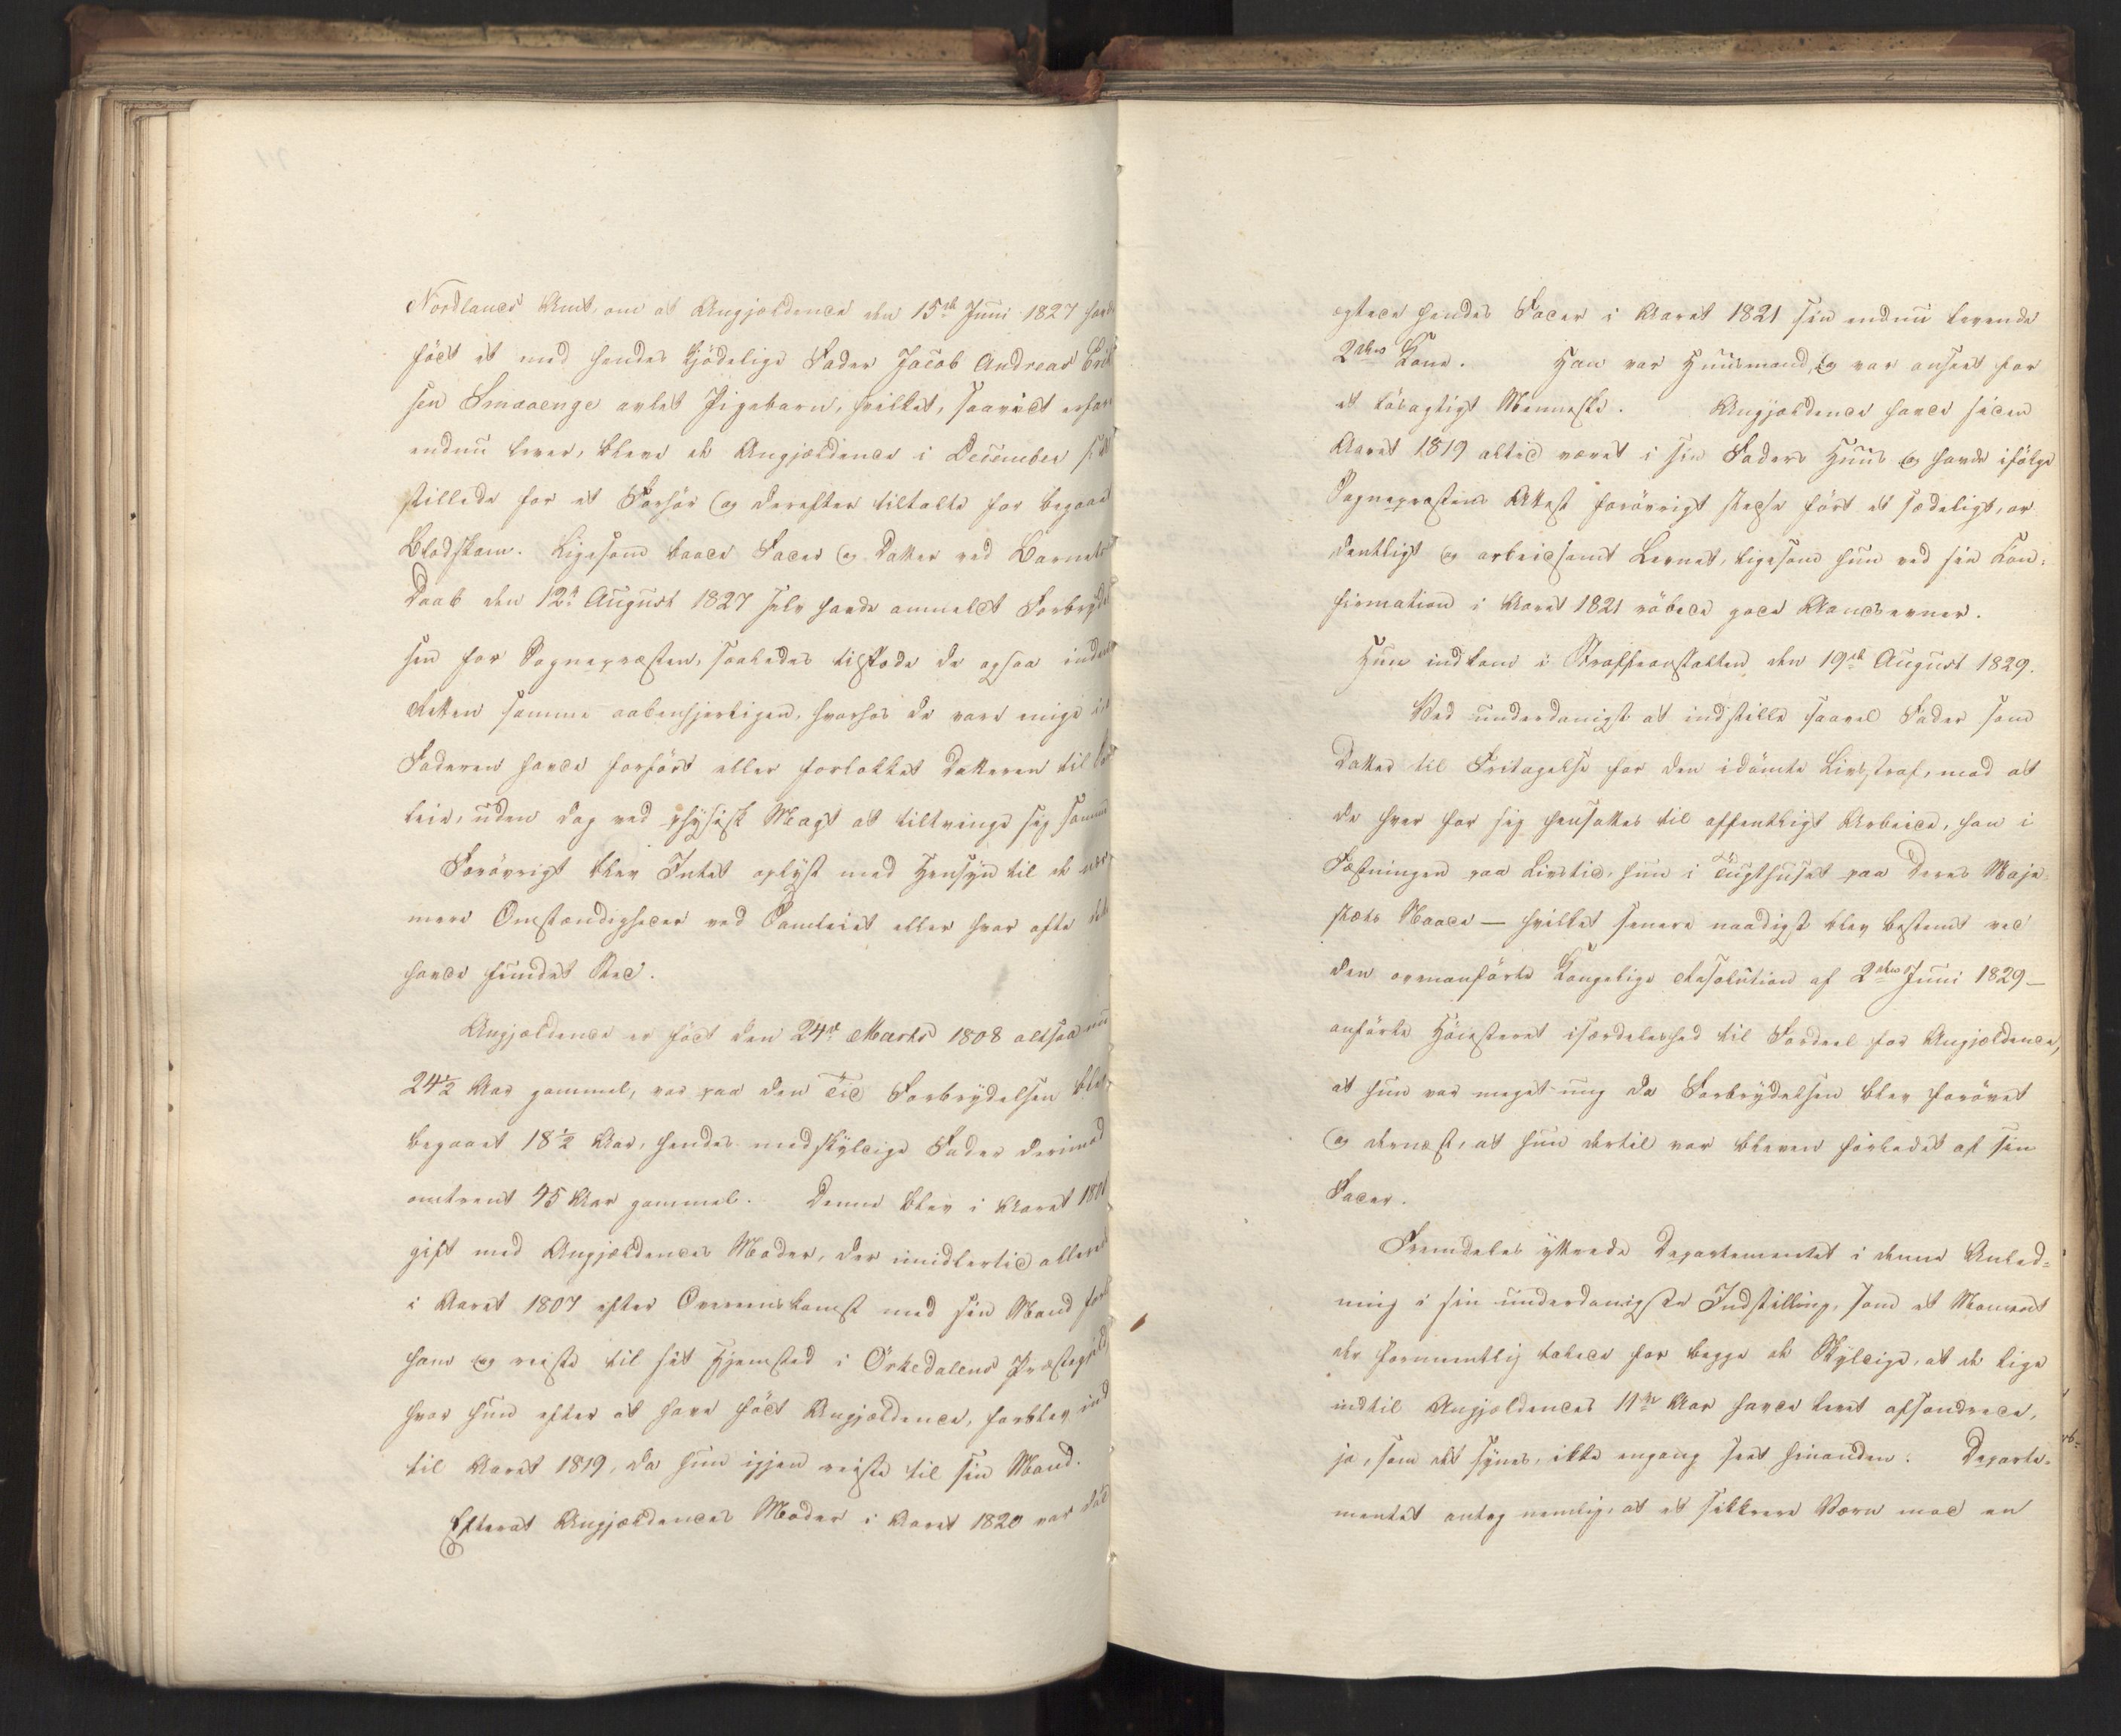 Nordlands Amt, om at Angjældende den 15de Juni 1827 havde
födt et med hendes kjödelige Fader Jacob Andreas
sen Smaaenge avlet Pigebarn, hvilket, saavidt erfares
endnu lever, bleve de Angjældende i December
stillede for et Forhör og derefter tiltalte for begaaet
Blodskam. Ligesom baade Fader og Datter ved Barnets
Daab den 12te August 1827 selv havde anmeldt Forbrydel
sen for Sognepræsten, saaledes tilstode de ogsaa inden
Retten samme aabenhjertigen, hvorhos de vare enige i at
Faderen havde forfört eller forlokket Datteren til Sam
leie, uden dog ved physisk Magt at tiltvinge sig samme
Forövrigt blev Intet oplyst med Hensyn til de nær
mere Omstændigheder ved Samleiet eller hvor ofte dette
havde fundet Sted.
Angjældende er födt den 24de Marts 1808 altsaa nu
24½ Aar gammel, var paa den Tid Forbrydelsen blev
begaaet 18½ Aar, hendes medskyldige Fader derimod
omtrent 45 Aar gammel. Denne blev i Aaret
gift med Angjældendes Moder, der imidlertid allerede
i Aaret 1807 efter Overeenskomst med sin Mand forlod
ham og reiste til sit Hjemsted i Örkedalens Præstegjeld
hvor hun efter at have födt Angjældende, forblev ind
til Aaret 1819, da hun igjen reiste til sin Mand.
Efterat Angjældendes Moder i Aaret 1820 var död
ægtede hendes Fader i Aaret 1821 sin endnu levende
2den Kone. Han var Huusmand, og var anseet for
et lösagtigt Menneske. Angjældende havde siden
Aaret 1819 altid været i sin Faders Huus og havde ifölge
Sognepræstens Attest forövrigt stedse fört et sædeligt, or
dentligt og arbeidsomt Levnet, ligesom hun ved sin Con-
firmation i Aaret 1821 röbede gode Aandsevner.
Hun indkom i Straffeanstalten den 19de August 1829.
Ved underdanigst at indstille saavel Fader som
Datter til Fritagelse for den idömte Livsstraf, mod at
de hver for sig hensattes til offentligt Arbeide, han i
Fæstningen paa Livstid, hun i Tugthuset paa Deres Maje
stæts Naade — hvilket senere naadigst blev bestemt ved
den ovenanförte Kongelige Resolution af 2den Juni 1829 —
anförte Höiesteret isærdeleshed til Fordeel for Angjældende,
at hun var meget ung da Forbrydelsen blev forövet
og dernæst, at hun dertil var bleven forledet af sin
Fader.
Fremdeles yttrede Departementet i denne Anled-
ning i sin underdanigste Indstilling, som et Moment
der formentlig talede for begge de Skyldige, at de lige
indtil Angjældendes 11te Aar havde levet afsondrede,
ja, som det synes, ikke engang seet hinanden. Departe-
mentet antog nemlig, at et sikkrere Værn mod en